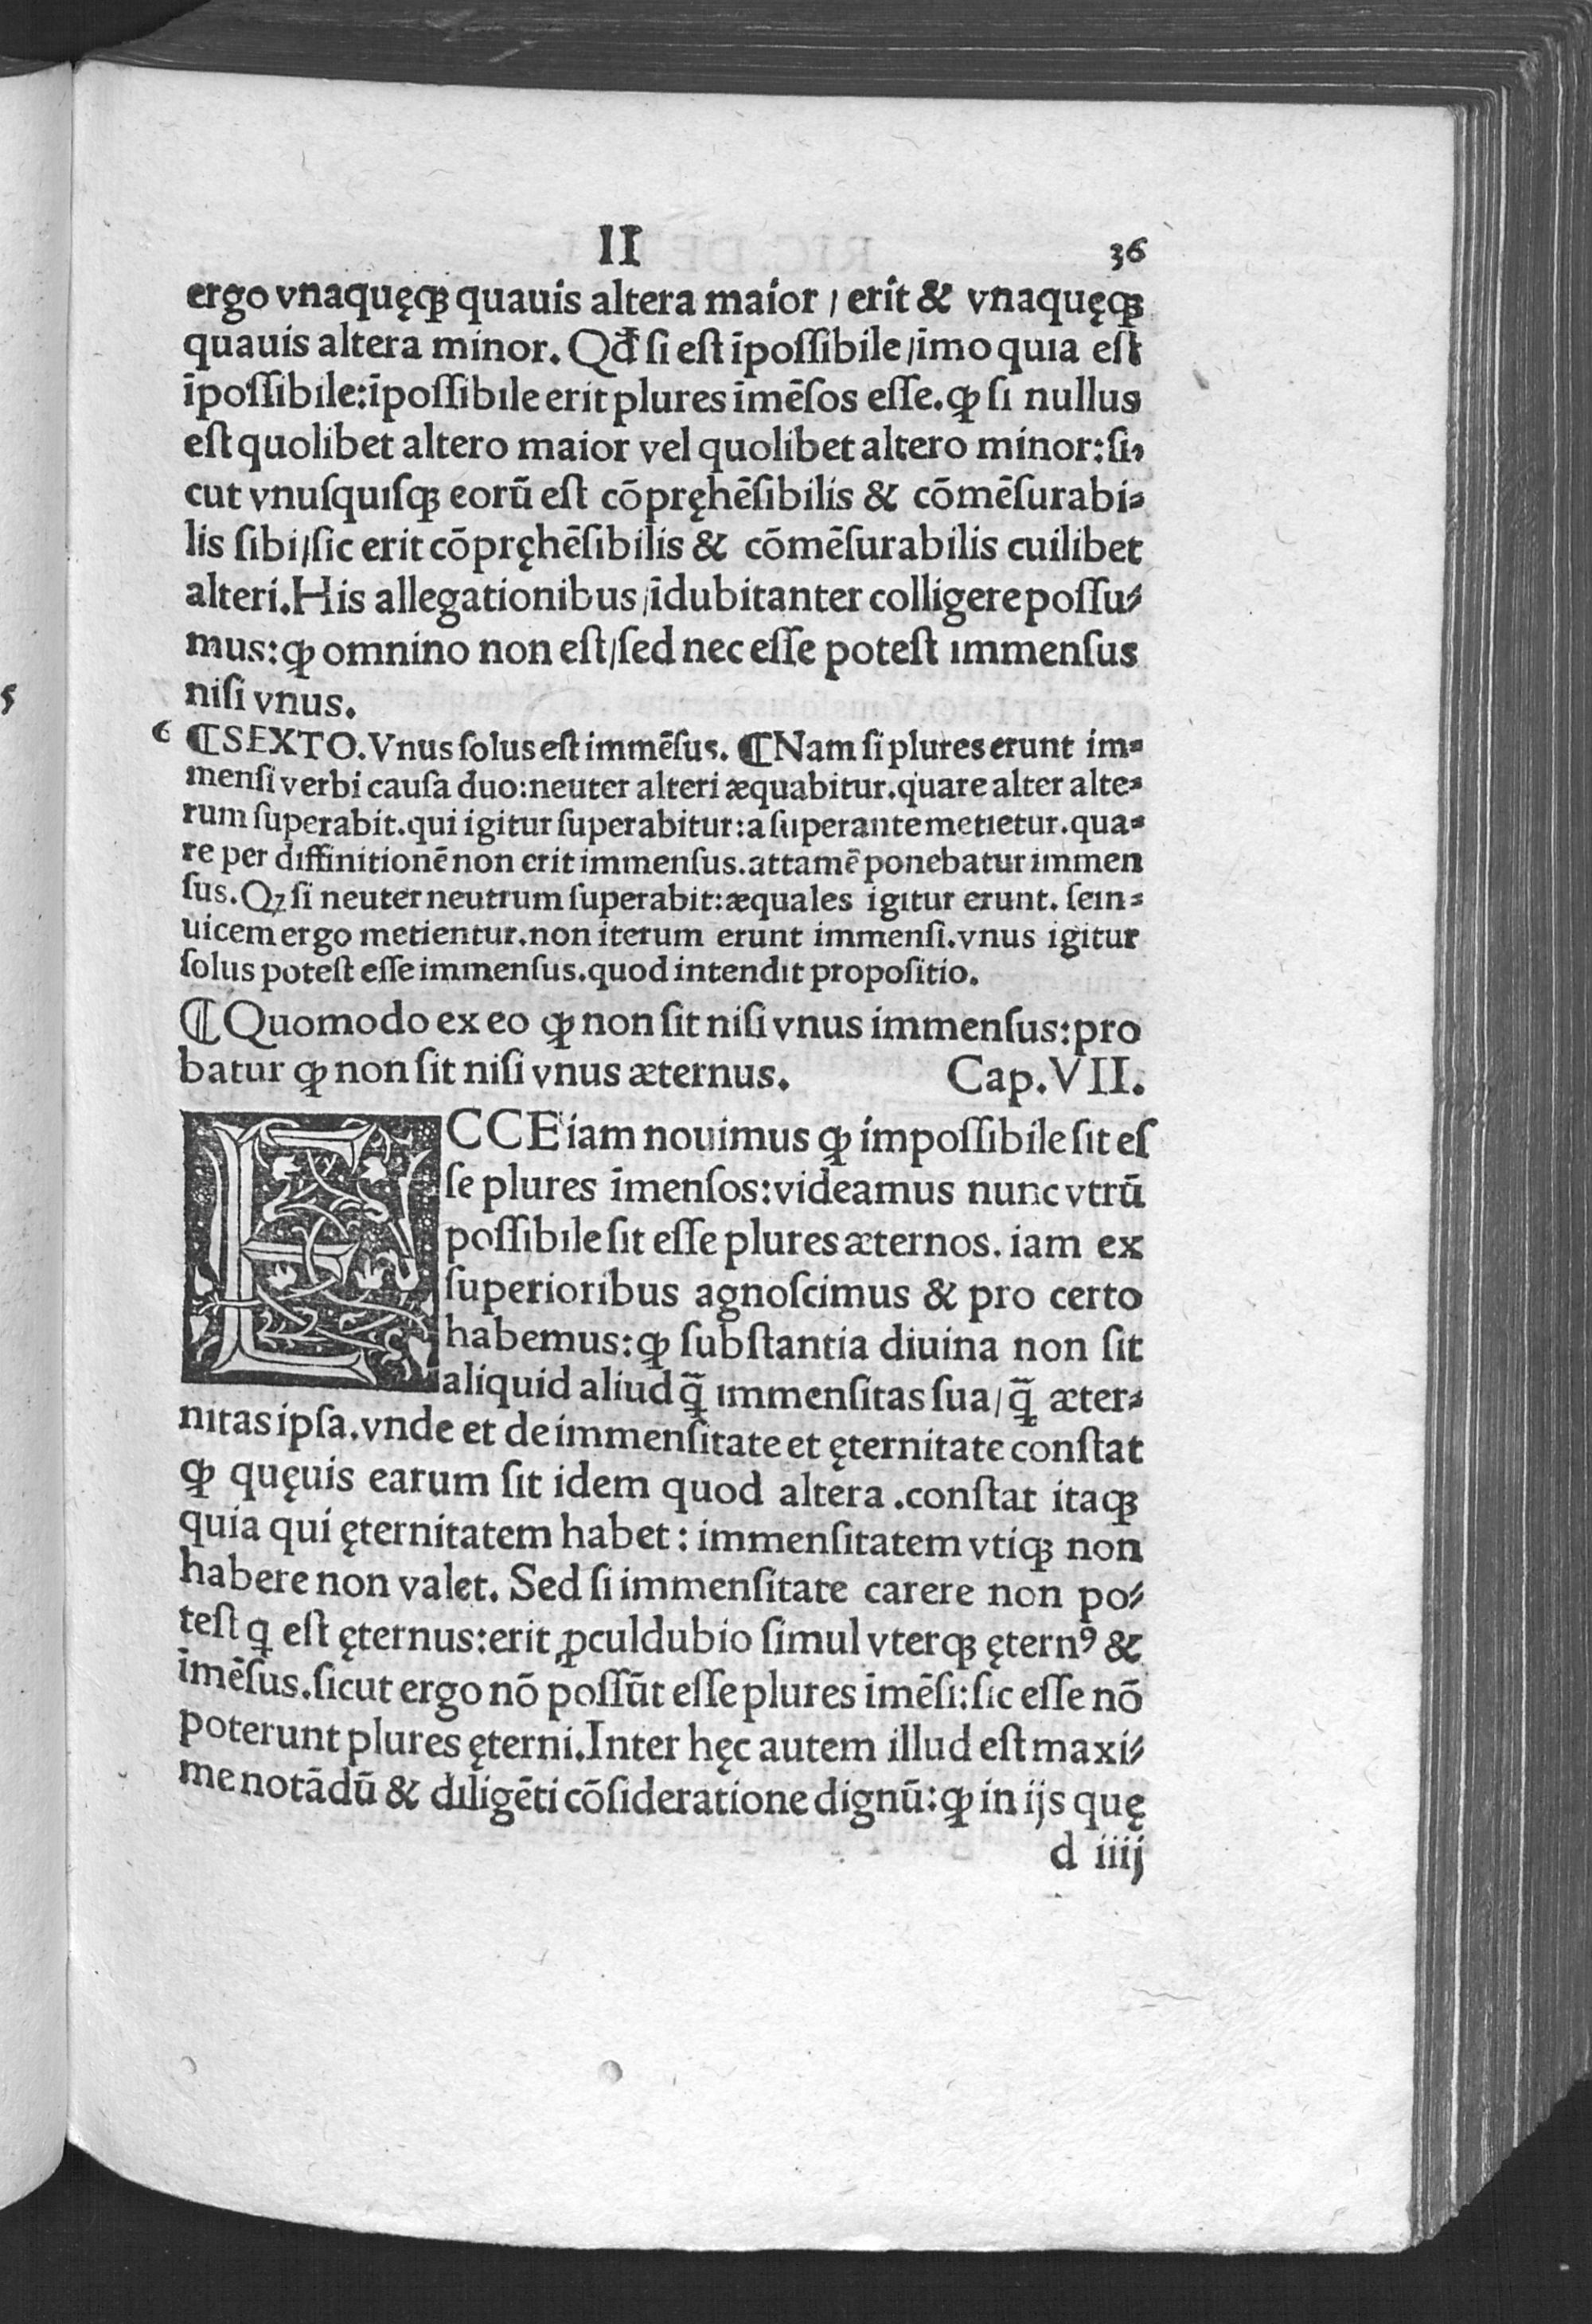 II 36
ergo vnaquęqꝫ quauis altera maior / erit & vnaquęqꝫ
quauis altera minor. Qđ ſi eſt īpoſſibile / imo quia eſt
īpoſſibile: īpoſſibile erit plures īmēſos eſſe. ꝙ ſi nullus
eſt quolibet altero maior vel quolibet altero minor: ſi-
cut vnuſquiſqꝫ eorū eſt cōpręhēſibilis & cōmēſurabi-
lis ſibi / ſic erit cōpręhēſibilis & cōmēſurabilis cuilibet
alteri. His allegationibus / īdubitanter colligere poſſu-
mus: ꝙ omnino non eſt / ſed nec eſſe poteſt immenſus
niſi vnus.
6 ¶ SEXTO. Vnus ſolus eſt immēſus. ¶ Nam ſi plures erunt im-
menſi verbi cauſa duo: neuter alteri æquabitur. quare alter alte-
rum ſuperabit. qui igitur ſuperabitur: a ſuperante metietur. qua-
re per diffinitionē non erit immenſus. attamē ponebatur immen
ſus. Qꝫ ſi neuter neutrum ſuperabit: æquales igitur erunt. ſein-
uicem ergo metientur. non iterum erunt immenſi. vnus igitur
ſolus poteſt eſſe immenſus. quod intendit propoſitio.
¶ Quomodo ex eo ꝙ non ſit niſi vnus immenſus: pro
batur ꝙ non ſit niſi vnus æternus. Cap. VII.
ECCE iam nouimus ꝙ impoſſibile ſit eſ
ſe plures īmenſos: videamus nunc vtrū
poſſibile ſit eſſe plures æternos. iam ex
ſuperioribus agnoſcimus & pro certo
habemus: ꝙ ſubſtantia diuina non ſit
aliquid aliud q̄ immenſitas ſua / q̄ æter-
nitas ipſa. vnde et de immenſitate et ęternitate conſtat
ꝙ quęuis earum ſit idem quod altera. conſtat itaqꝫ
quia qui ęternitatem habet: immenſitatem vtiqꝫ non
habere non valet. Sed ſi immenſitate carere non po-
teſt ꝗ eſt ęternus: erit ꝓculdubio ſimul vterqꝫ ętern⁹ &
īmēſus. ſicut ergo nō poſſūt eſſe plures īmēſi: ſic eſſe nō
poterunt plures ęterni. Inter hęc autem illud eſt maxi-
me notādū & diligēti cōſideratione dignū: ꝙ in ijs quę
d iiij
5